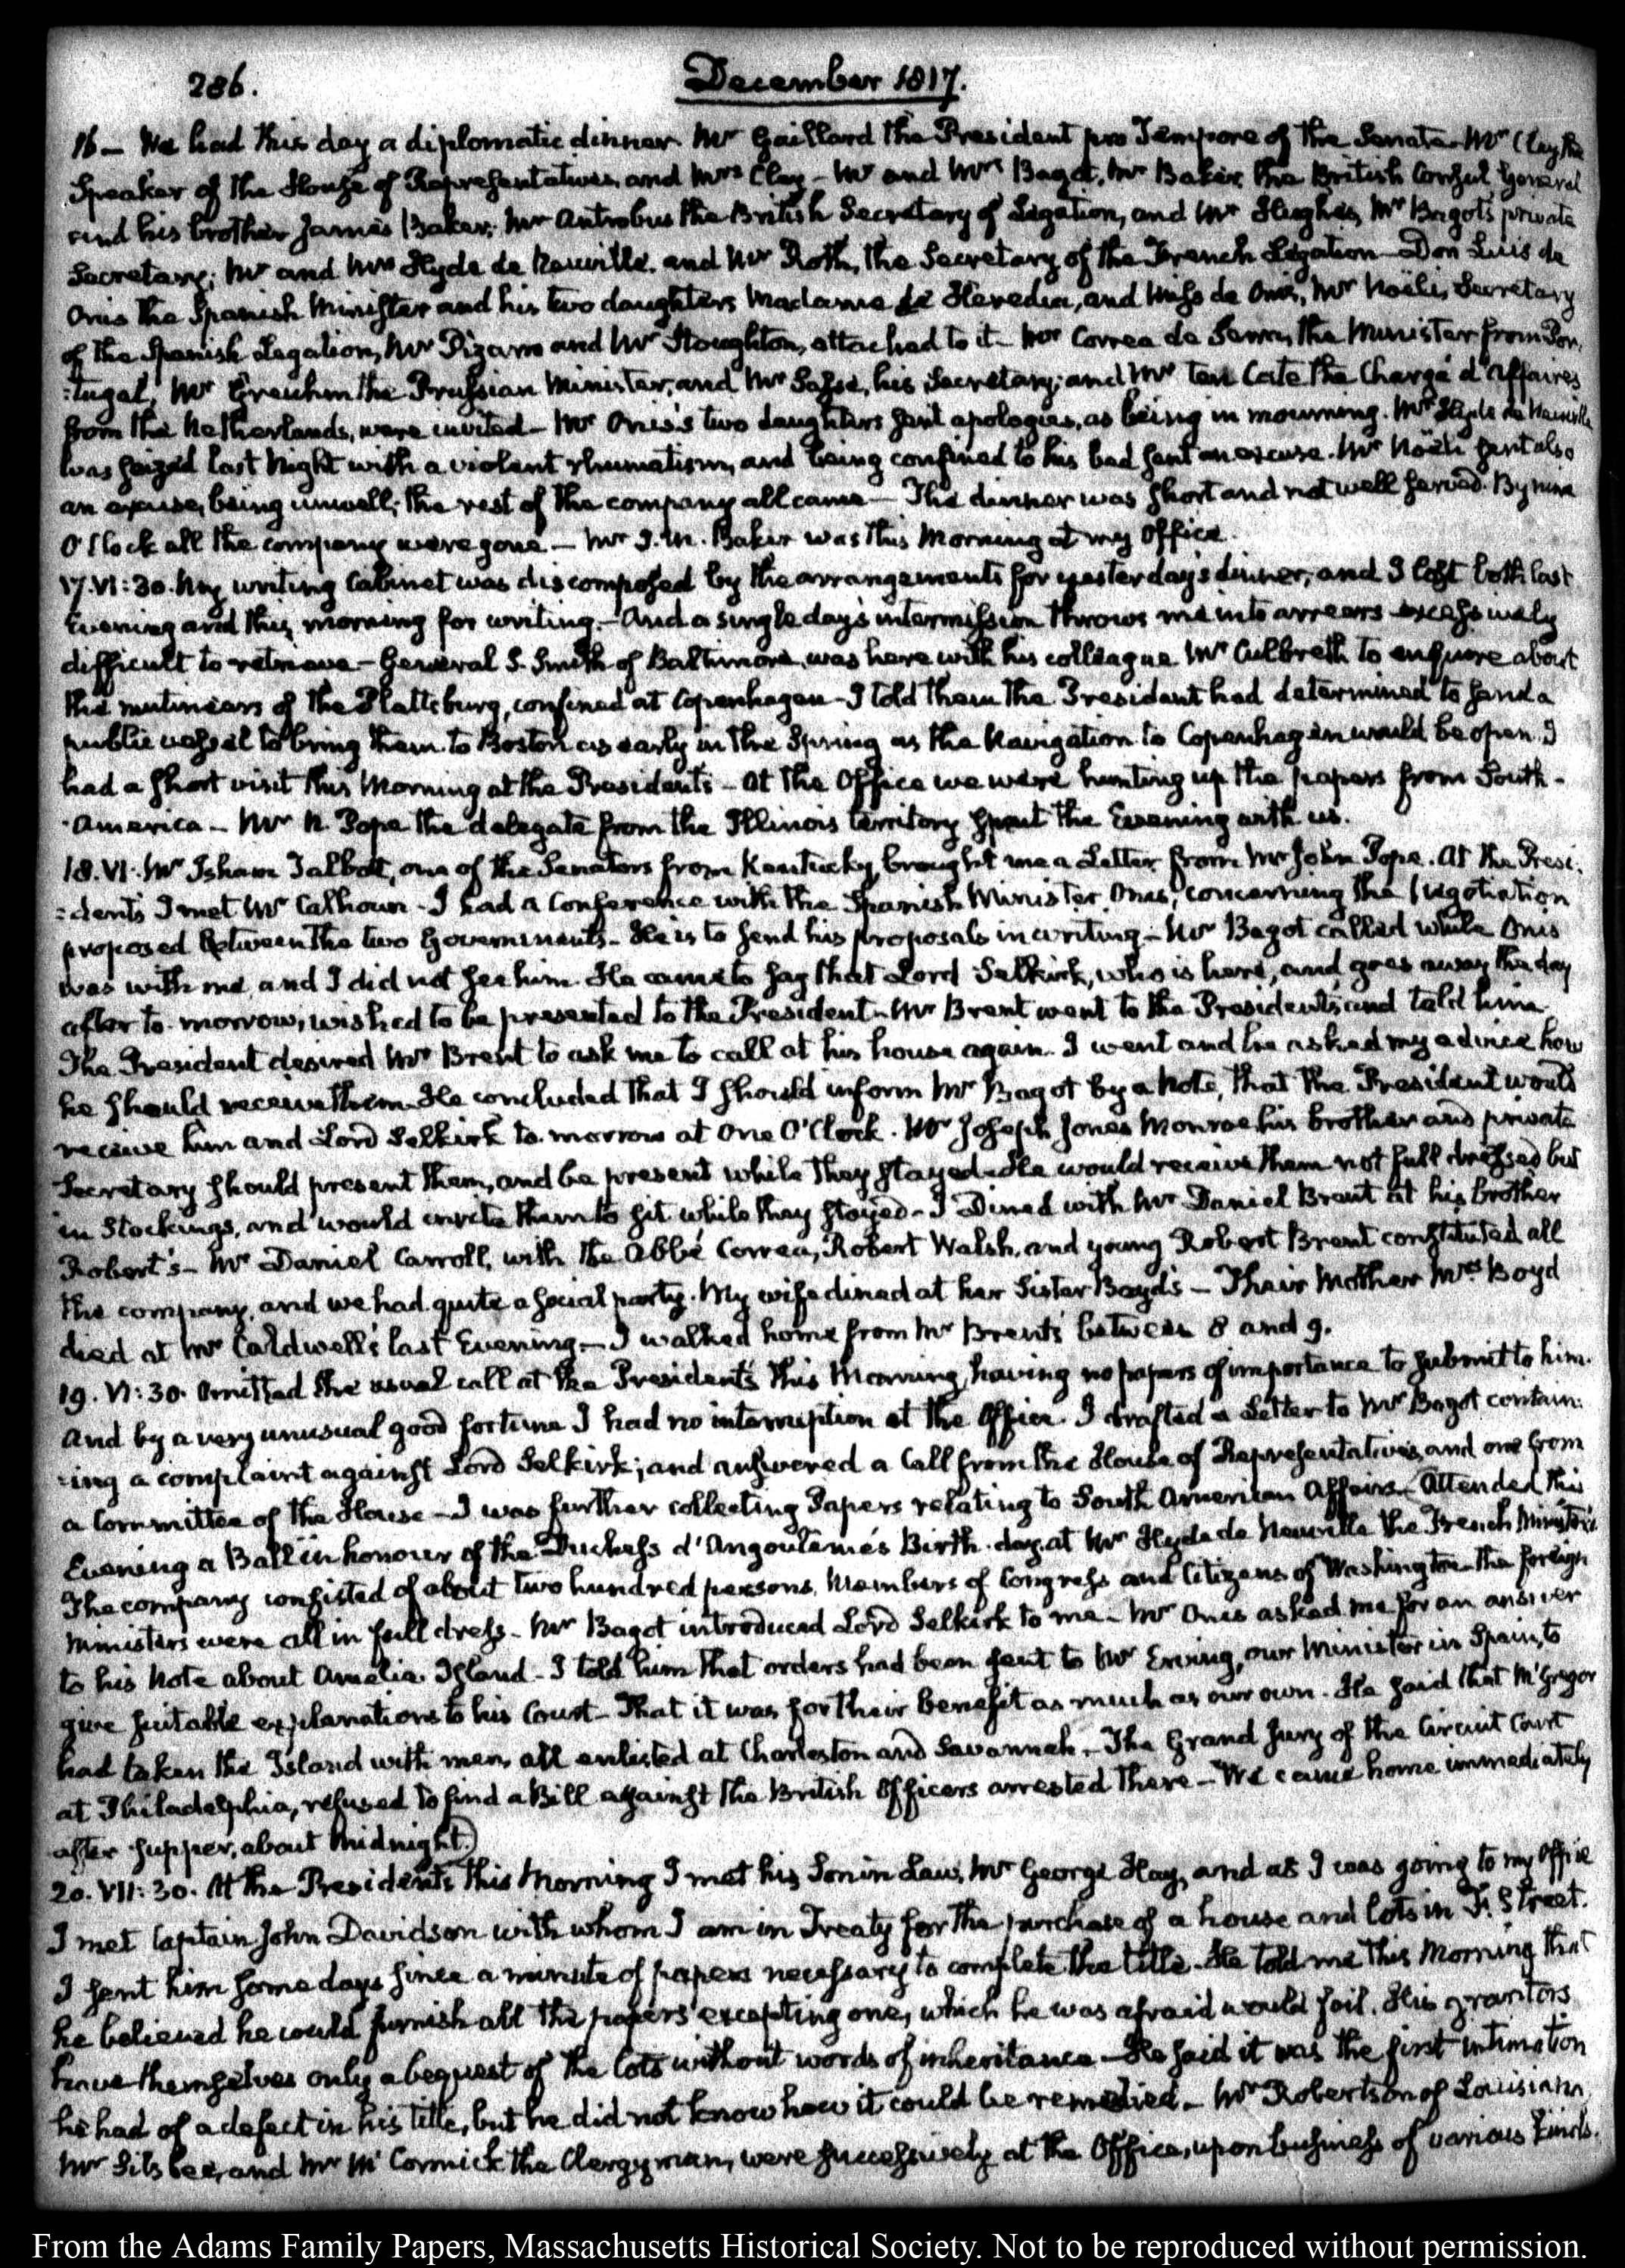 286.
December 1817.
16 — We had this day a diplomatic dinner. Mr Gaillard the President pro Tempore of the Senate — Mr Clay the
Speaker of the House of Representatives and Mrs Clay — Mr and Mrs Bagot, Mr Baker, the British Consul General
and his brother James Baker; Mr Antrobus the British Secretary of Legation, and Mr Hughes, Mr Bagot's private
Secretary; Mr and Mrs Hyde de Neuville, and Mr Roth, the Secretary of the French Legation — Don Luis de
Onis the Spanish Minister and his two daughters Madame de Heredia, and Miss de Onis, Mr Noëli, Secretary
of the Spanish Legation, Mr Pizarro and Mr Stoughton, attached to it — Mr Correa de Serra, the Minister from Por-
:tugal, Mr Greuhm the Prussian Minister, and Mr Sasse, his Secretary; and Mr Ten Cate the Chargé d'Affaires
from the Netherlands, were invited — Mr Onis's two daughters sent apologies, as being in mourning. Mr Hyde de Neuville
was seized last Night with a violent rhumatism, and being confined to his bed sent an excuse. Mr Noëli sent also
an excuse, being unwell; the rest of the company all came — The dinner was short and not well served. By nine
O'Clock all the company were gone — Mr J. M. Baker was this Morning at my Office.
17. VI:30. My writing Cabinet was discomposed by the arrangements for yesterday's dinner, and I lost both last
Evening and this morning for writing. — And a single day's intermission throws me into arrears excessively
difficult to retrieve — General S. Smith of Baltimore, was here with his colleague Mr Culbreth to enquire about
the mutineers of the Plattsburg, confined at Copenhagen — I told them the President had determined to send a
public vessel to bring them to Boston as early in the Spring as the Navigation to Copenhagen would be open. I
had a short visit this Morning at the President's — At the Office we were hunting up the papers from South-
-America — Mr N. Pope the delegate from the Illinois territory spent the Evening with us.
18. VI. Mr Isham Talbot, one of the Senators from Kentucky, brought me a Letter from Mr John Pope. At the Presi-
:dent's I met Mr Calhoun — I had a Conference with the Spanish Minister Onis, concerning the Negotiation
proposed between the two Governments — He is to send his proposals in writing — Mr Bagot called while Onis
was with me, and I did not see him. He came to say that Lord Selkirk, who is here, and goes away the day
after to-morrow, wished to be presented to the President — Mr Brent went to the President's and told him.
The President desired Mr Brent to ask me to call at his house again. I went and he asked my advice how
he should receive them. He concluded that I should inform Mr Bagot by a Note, that the President would
receive him and Lord Selkirk to-morrow at One O'Clock. Mr Joseph Jones Monroe his brother and private
Secretary should present them, and be present while they stayed. He would receive them not full dressed but
in Stockings, and would invite them to sit while they stayed — I Dined with Mr Daniel Brent at his brother
Robert's — Mr Daniel Carroll, with the Abbé Correa, Robert Walsh, and young Robert Brent constituted all
the company, and we had quite a social party. My wife dined at her Sister Boyd's — Their Mother Mrs Boyd
died at Mr Caldwell's last Evening — I walked home from Mr Brent's between 8 and 9.
19. VI:30. Omitted the usual call at the President's this Morning, having no papers of importance to submit to him.
And by a very unusual good fortune I had no interruption at the Office. I drafted a Letter to Mr Bagot contain-
:ing a complaint against Lord Selkirk; and answered a Call from the House of Representatives, and one from
a Committee of the House — I was further collecting Papers relating to South American Affairs — Attended this
Evening a Ball in honour of the Duchess d'Angouleme's Birth-day, at Mr Hyde de Neuville the French Minister's
The company consisted of about two hundred persons, Members of Congress and Citizens of Washington — The foreign
Ministers were all in full dress — Mr Bagot introduced Lord Selkirk to me — Mr Onis asked me for an answer
to his Note about Amelia Island — I told him that orders had been sent to Mr Erving, our Minister in Spain, to
give suitable explanations to his Court — That it was for their benefit as much as our own. He said that McGregor
had taken the Island with men, all enlisted at Charleston and Savannah. — The Grand Jury of the Circuit Court
at Philadelphia, refused to find a Bill against the British Officers arrested there — We came home immediately
after supper, about Midnight.
20. VII:30. At the President's this Morning I met his Son in Law, Mr George Hay, and as I was going to my Office
I met Captain John Davidson with whom I am in Treaty for the purchase of a house and lots in F. Street.
I sent him some days since a minute of papers necessary to complete the title. He told me this Morning that
he believed he could furnish all the papers excepting one, which he was afraid would fail. His grantors
have themselves only a bequest of the lots without words of inheritance — He said it was the first intimation
he had of a defect in his title, but he did not know how it could be remedied. — Mr Robertson of Louisiana
Mr Silsbee, and Mr McCormick the Clergyman, were successively at the Office, upon business of various kinds.
From the Adams Family Papers, Massachusetts Historical Society. Not to be reproduced without permission.